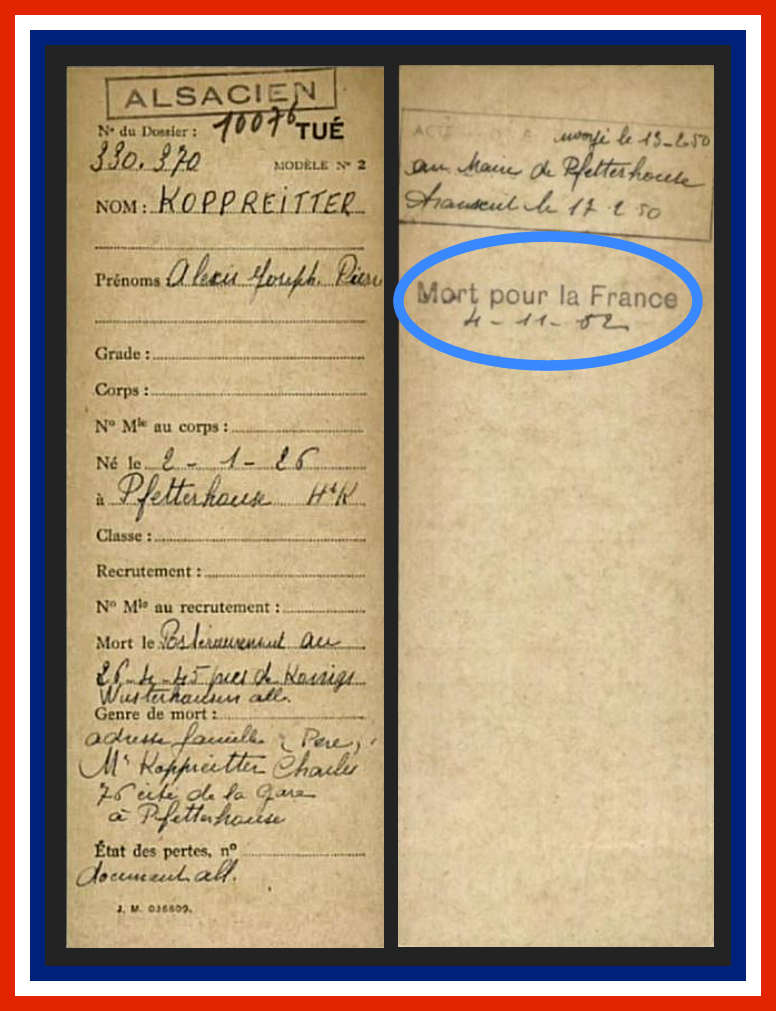 ALSACIEN
Nº du Dossier : 10076 TUÉ
330.370
MODÈLE Nº 2
NOM : KOPPREITTER
Prénoms : Alexis Joseph Pierre
Grade :
Corps :
Nº Mle au corps :
Né le 2 - 1 - 26
à Pfetterhouse Ht R
Classe :
Recrutement :
Nº Mle au recrutement :
Mort le Postérieurement au
26-4-45 près de Konigs
Wusterhausen all.
Genre de mort :
adresse famille (Père)
Mr Koppreitter Charles
76 cité de la Gare
à Pfetterhouse
État des pertes, nº
document all.
J. M. 036809.
ACTE envoyé le 13-2-50
au Maire de Pfetterhouse
transcrit le 17 2 50
Mort pour la France
4 - 11 - 52